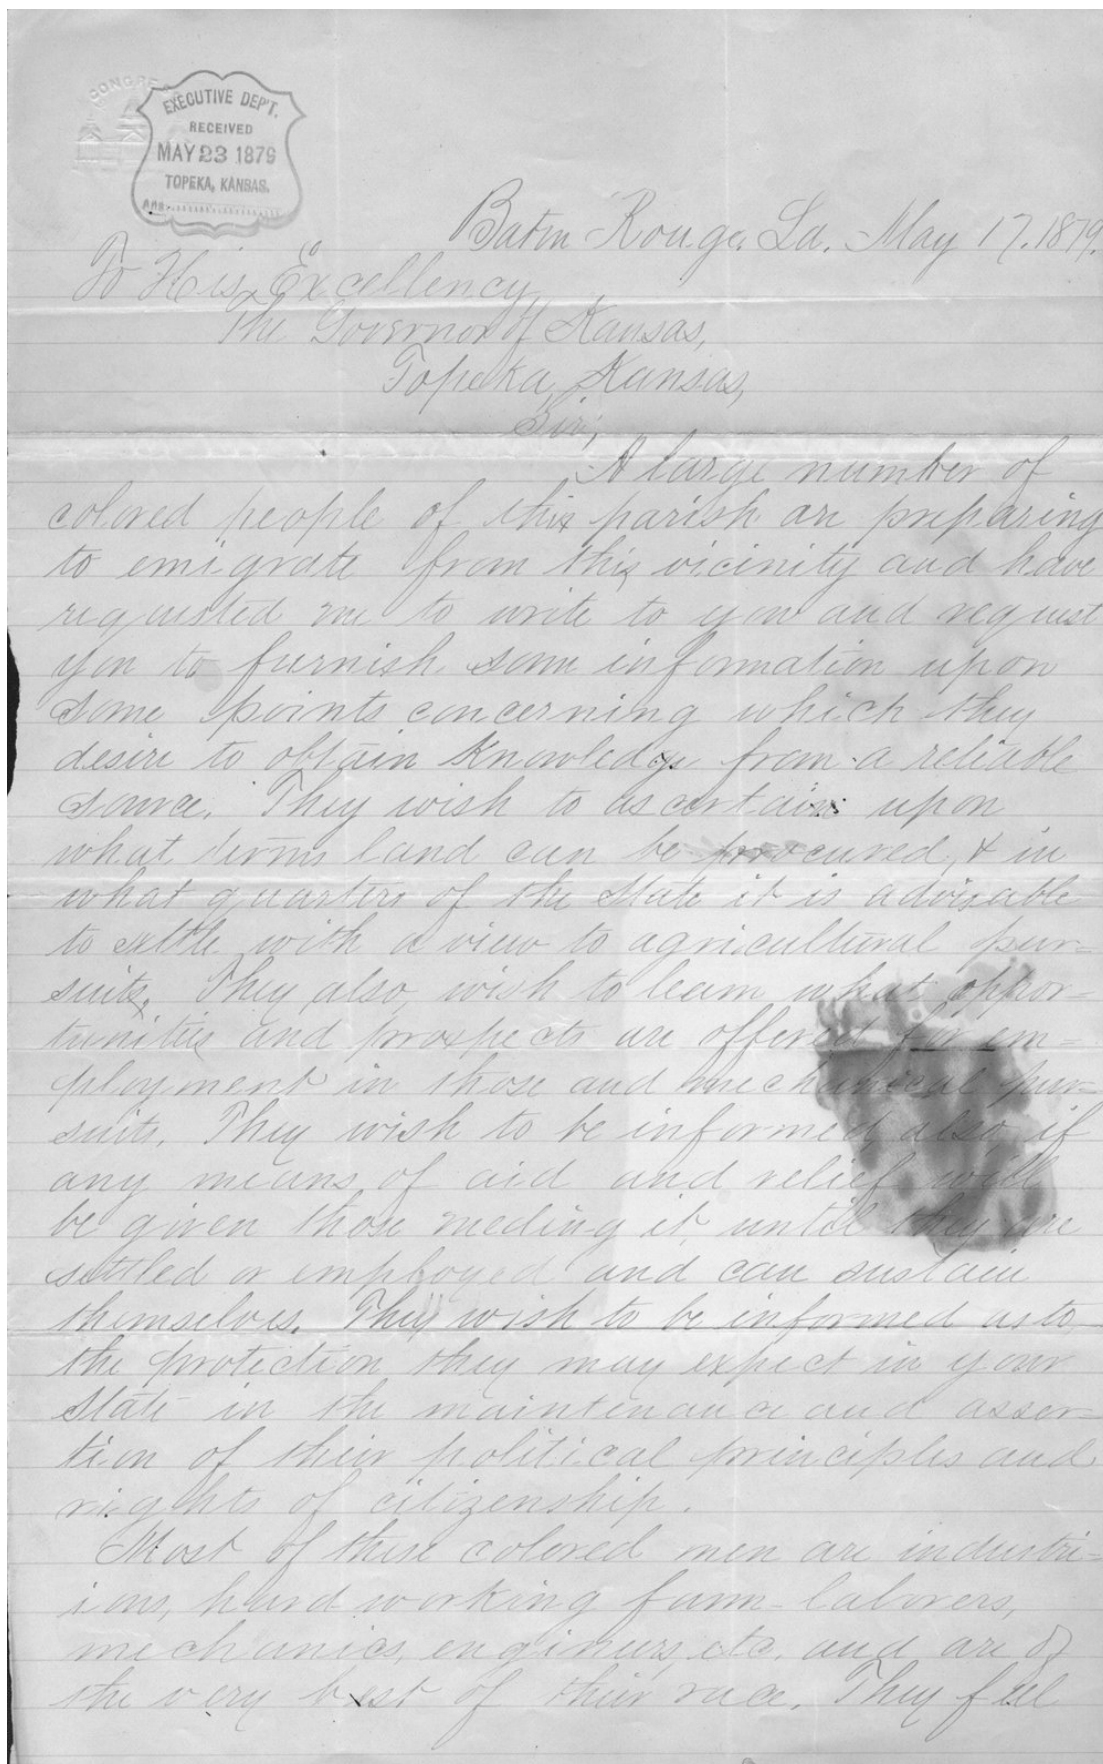 CONGRE
EXECUTIVE DEP'T.
RECEIVED
MAY 23 1879
TOPEKA, KANSAS.
Ans.
Baton Rouge, La. May 17. 1879.
To His Excellency,
The Governor of Kansas,
Topeka, Kansas,
Sir;
A large number of
colored people of this parish are preparing
to emigrate from this vicinity and have
requested me to write to you and request
you to furnish some information upon
some points concerning which they
desire to obtain knowledge from a reliable
source. They wish to ascertain upon
what terms land can be procured, & in
what quarters of the State it is advisable
to settle with a view to agricultural pur=
suits. They also, wish to learn what oppor=
tunities and prospects are offered for em=
ployment in those and mechanical pur=
suits. They wish to be informed also if
any means of aid and relief will
be given those needing it, until they are
settled or employed and can sustain
themselves. They wish to be informed as to
the protection they may expect in your
State in the maintenance and asser=
tion of their political principles and
rights of citizenship.
Most of these colored men are industri=
ious, hard working farm-laborers,
mechanics, engineers, etc. and are of
the very best of their race. They feel